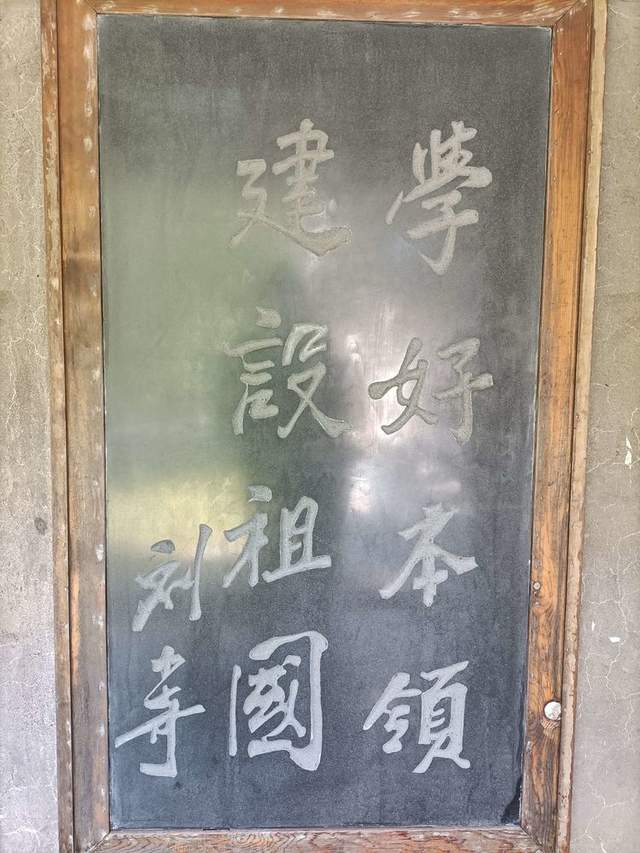 學好本領
建設祖國
刘